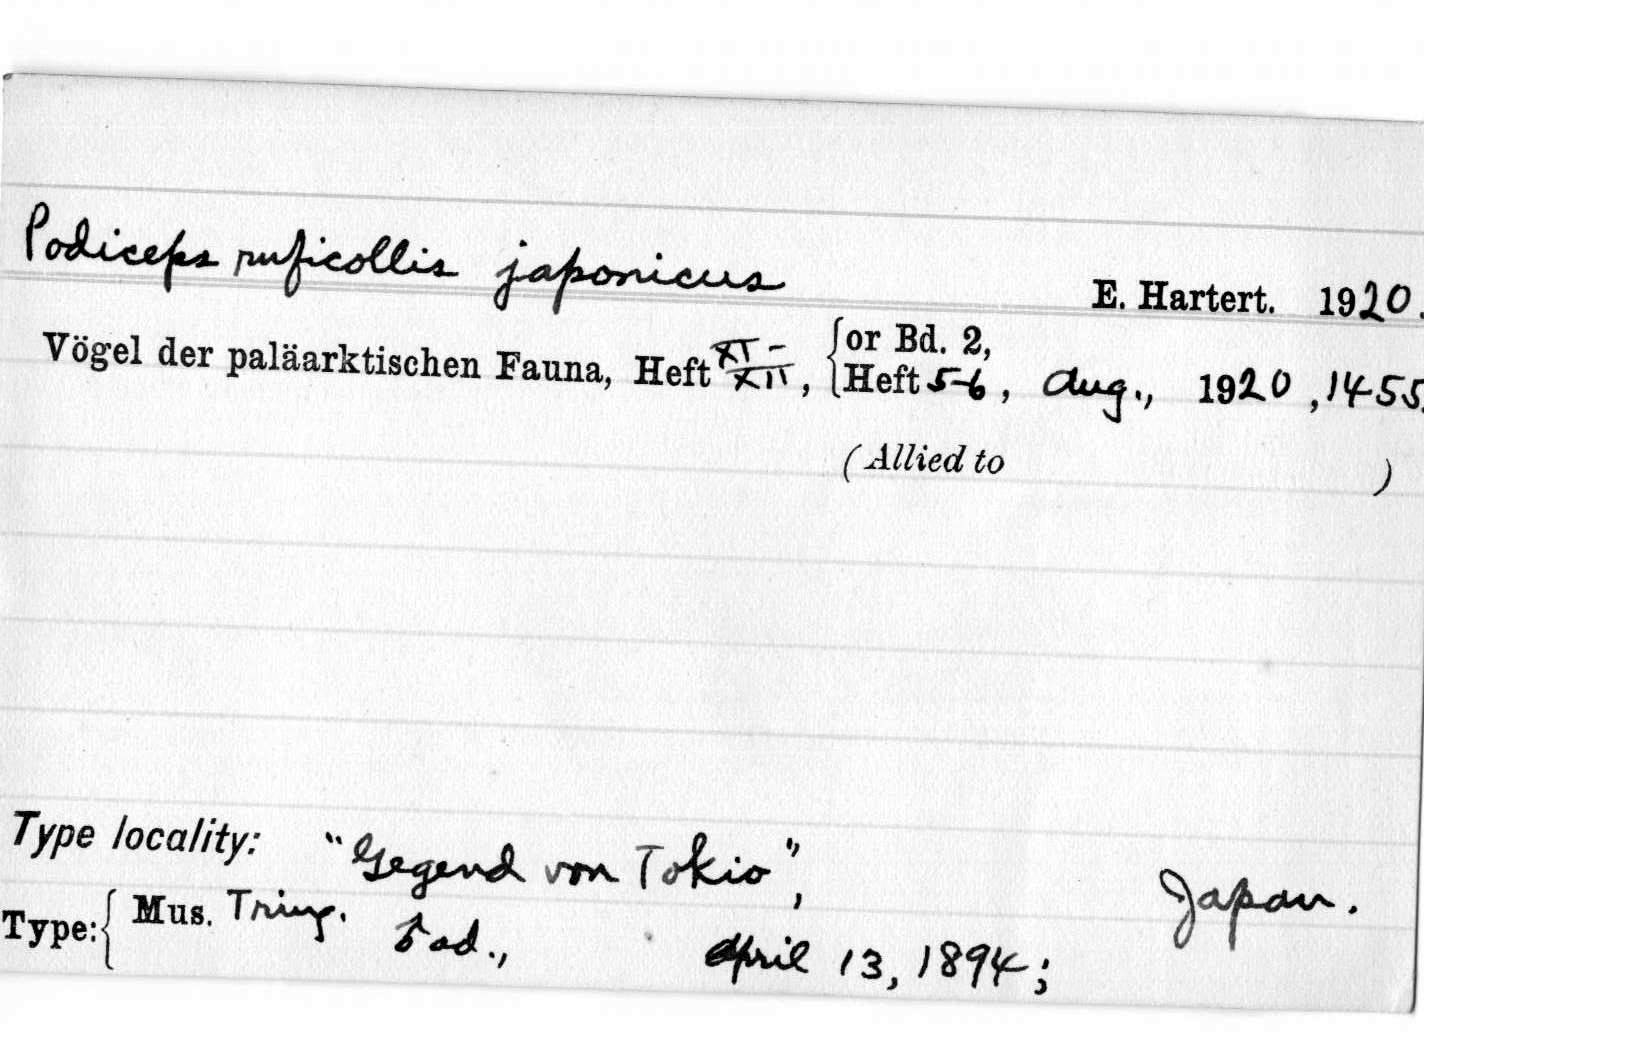 Podiceps ruficollis japonicus E. Hartert. 1920.
Vögel der paläarktischen Fauna, Heft XI-XII, {or Bd. 2, Heft 5-6, Aug., 1920, 1455.
(Allied to )
Type locality: "Gegend von Tokio", Japan.
Type: { Mus. Tring. ♂ ad., April 13, 1894;